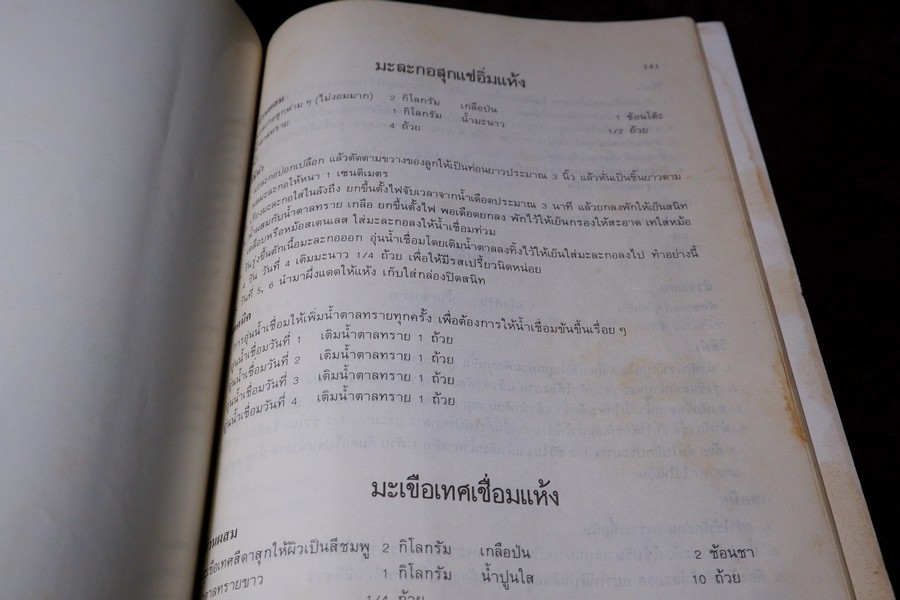 มะละกอสุกแช่อิ่มแห้ง
141
ผสม
สุกห่าม ๆ (ไม่งอมมาก) 2 กิโลกรัม เกลือป่น 1 ช้อนโต๊ะ
ทราย 1 กิโลกรัม น้ำมะนาว 1/2 ถ้วย
4 ถ้วย
มะละกอปอกเปลือก แล้วตัดตามขวางของลูกให้เป็นท่อนยาวประมาณ 3 นิ้ว แล้วหั่นเป็นชิ้นยาวตาม
มะละกอให้หนา 1 เซนติเมตร
มะละกอใส่ในลังถึง ยกขึ้นตั้งไฟจับเวลาจากน้ำเดือดประมาณ 3 นาที แล้วยกลงพักให้เย็นสนิท
ผสมกับน้ำตาลทราย เกลือ ยกขึ้นตั้งไฟ พอเดือดยกลง พักไว้ให้เย็นกรองให้สะอาด เทใส่หม้อ
เคลือบหรือหม้อสเตนเลส ใส่มะละกอลงให้น้ำเชื่อมท่วม
รุ่งขึ้นตักเนื้อมะละกอออก อุ่นน้ำเชื่อมโดยเติมน้ำตาลลงทิ้งไว้ให้เย็นใส่มะละกอลงไป ทำอย่างนี้
4 วัน วันที่ 4 เติมมะนาว 1/4 ถ้วย เพื่อให้มีรสเปรี้ยวนิดหน่อย
วันที่ 5, 6 นำมาผึ่งแดดให้แห้ง เก็บใส่กล่องปิดสนิท
การอุ่นน้ำเชื่อมให้เพิ่มน้ำตาลทรายทุกครั้ง เพื่อต้องการให้น้ำเชื่อมข้นขึ้นเรื่อย ๆ
อุ่นน้ำเชื่อมวันที่ 1 เติมน้ำตาลทราย 1 ถ้วย
อุ่นน้ำเชื่อมวันที่ 2 เติมน้ำตาลทราย 1 ถ้วย
อุ่นน้ำเชื่อมวันที่ 3 เติมน้ำตาลทราย 1 ถ้วย
อุ่นน้ำเชื่อมวันที่ 4 เติมน้ำตาลทราย 1 ถ้วย
มะเขือเทศเชื่อมแห้ง
ผสม
มะเขือเทศสีดาสุกให้ผิวเป็นสีชมพู 2 กิโลกรัม เกลือป่น 2 ช้อนชา
ตาลทรายขาว 1 กิโลกรัม น้ำปูนใส 10 ถ้วย
1/4 ถ้วย